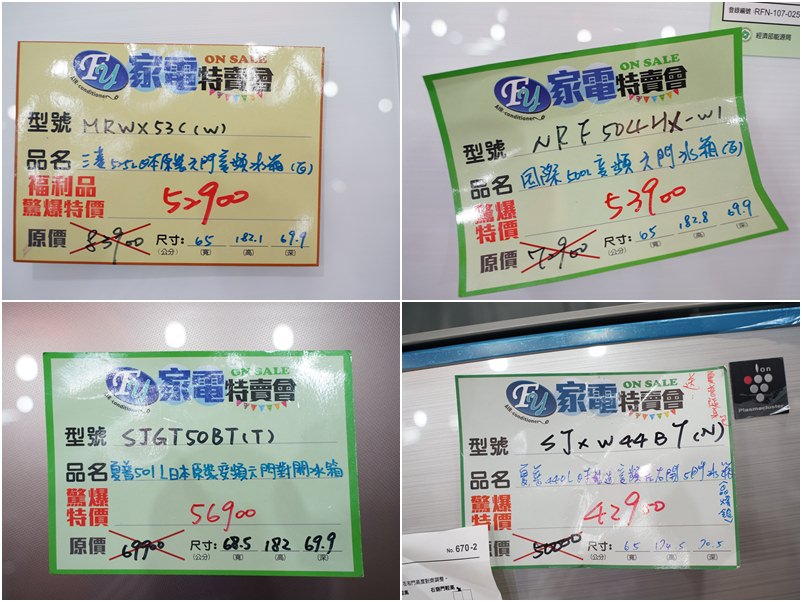 FU 家電特賣會 ON SALE
AIR-conditioner
型號 MRWX53C(W)
品名 三菱525L日本原裝六門變頻冰箱(白)
福利品
驚爆特價 52900
原價 83900 尺寸:(公分) 65(寬) 182.1(高) 69.9(深)
登錄編號:RFN-107-025
經濟部能源局
FU 家電特賣會 ON SALE
AIR-conditioner
型號 NRF504HX-W1
品名 国際500L変頻六門冰箱(白)
驚爆特價 53900
原價 72900 尺寸:(公分) 65(寬) 182.8(高) 69.9(深)
FU 家電特賣會 ON SALE
AIR-conditioner
型號 SJGT50BT(T)
品名 夏普501L日本原裝変頻六門對開冰箱
驚爆特價 56900
原價 69900 尺寸:(公分) 68.5(寬) 182(高) 69.9(深)
FU 家電特賣會 ON SALE
AIR-conditioner
送
型號 SJXW44BT(N)
品名 夏普440L日本製造変頻左右開5門冰箱
驚爆特價 42900
原價 50000 尺寸:(公分) 65(寬) 174.5(高) 70.5(深)
Ion
Plasmacluster
No. 670-2
左右門高度對齊調整。
右側門較高